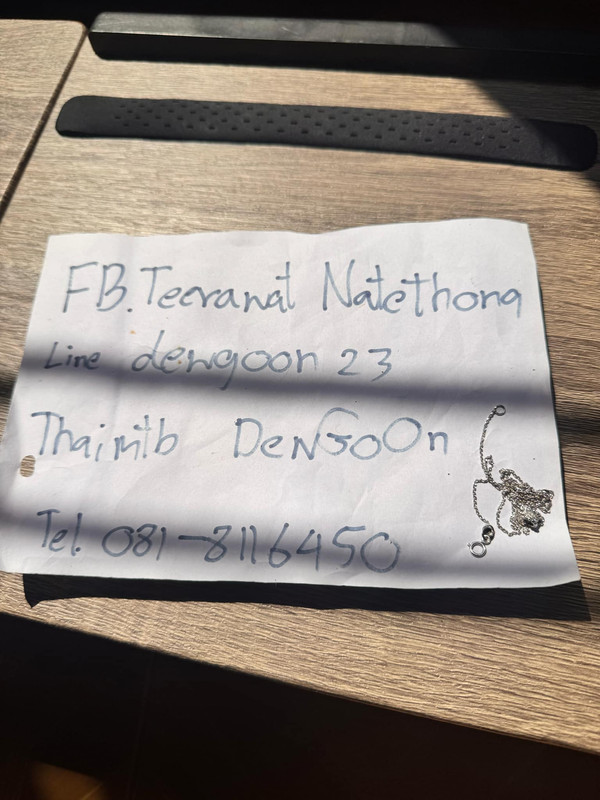 FB. Teeranat Natethong
Line dengoon 23
Thaimtb DeNGoOn
Tel. 081-8116450